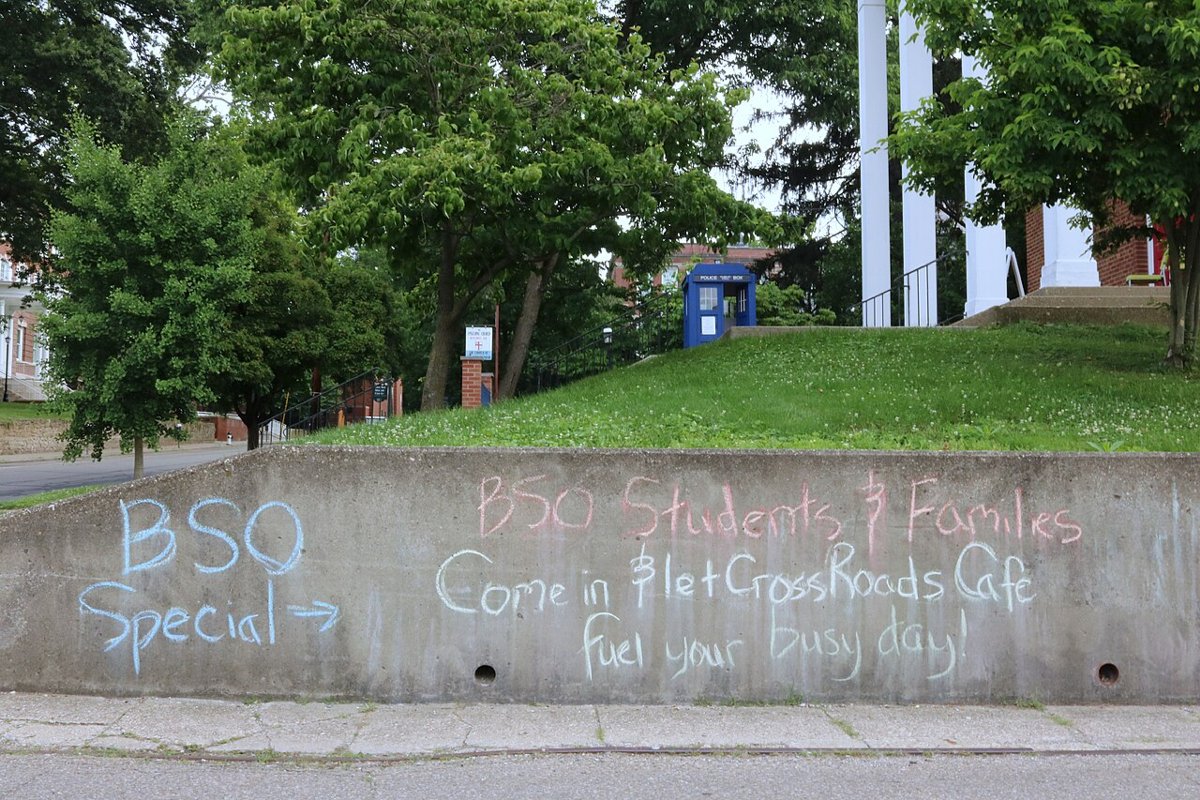 POLICE BOX
BSO
Special →
BSO Students & Families
Come in & let CrossRoads Cafe
fuel your busy day!